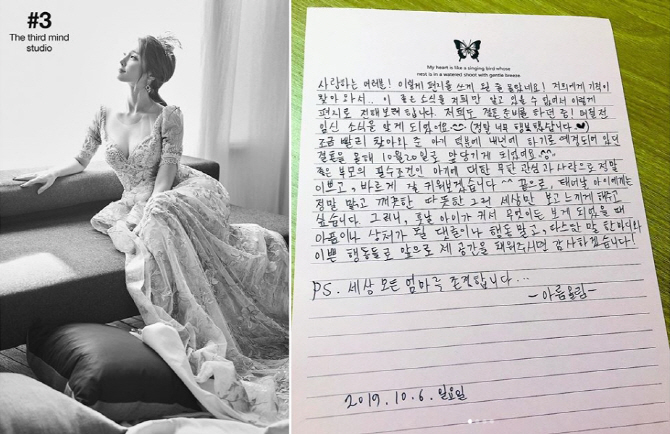 #3
The third mind
studio
My heart is like a singing bird whose
nest is in a watered shoot with gentle breeze
사랑하는 여러분! 이렇게 편지를 쓰게 된 줄 몰랐네요! 저희에게 기적이
찾아와서.. 이 좋은 소식을 저희만 알고 있을 수 없어서 이렇게
편지로 전해보려 합니다. 저희도 결혼 준비를 하던 중! 며칠전
임신 소식을 알게 되었어요 (정말 너무 행복했답니다..♥)
조금 빨리 찾아와 준 아기 덕분에 내년에 하기로 예정되어 있던
결혼을 올해 10월 20일로 앞당기게 되었어요 ^^
좋은 부모의 필수조건인 아기에 대한 무한 관심과 사랑으로 정말
이쁘고, 바르게 잘 키워보겠습니다 ^^ 끝으로, 태어날 아이에게는
정말 맑고 깨끗한 따뜻한 그런 세상만 보고 느끼게 해주고
싶습니다. 그러니, 훗날 아이가 커서 무엇이든 보게 되었을 때
아픔이나 상처가 될 대화나 행동 말고, 따스한 말 한마디와
이쁜 행동들로 앞으로 제 공간을 채워주시면 감사하겠습니다!
PS. 세상 모든 엄마들 존경합니다...
-아름올림-
2019. 10. 6. 일요일